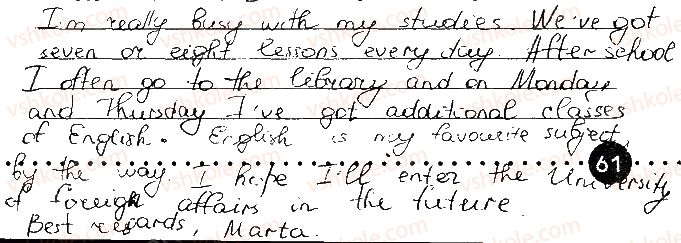 I'm really busy with my studies. We've got
seven or eight lessons every day. After school
I often go to the library and on Monday
and Thursday I've got additional classes
of English. English is my favourite subject,
by the way. I hope I'll enter the University
61
of foreign affairs in the future.
Best regards, Marta.